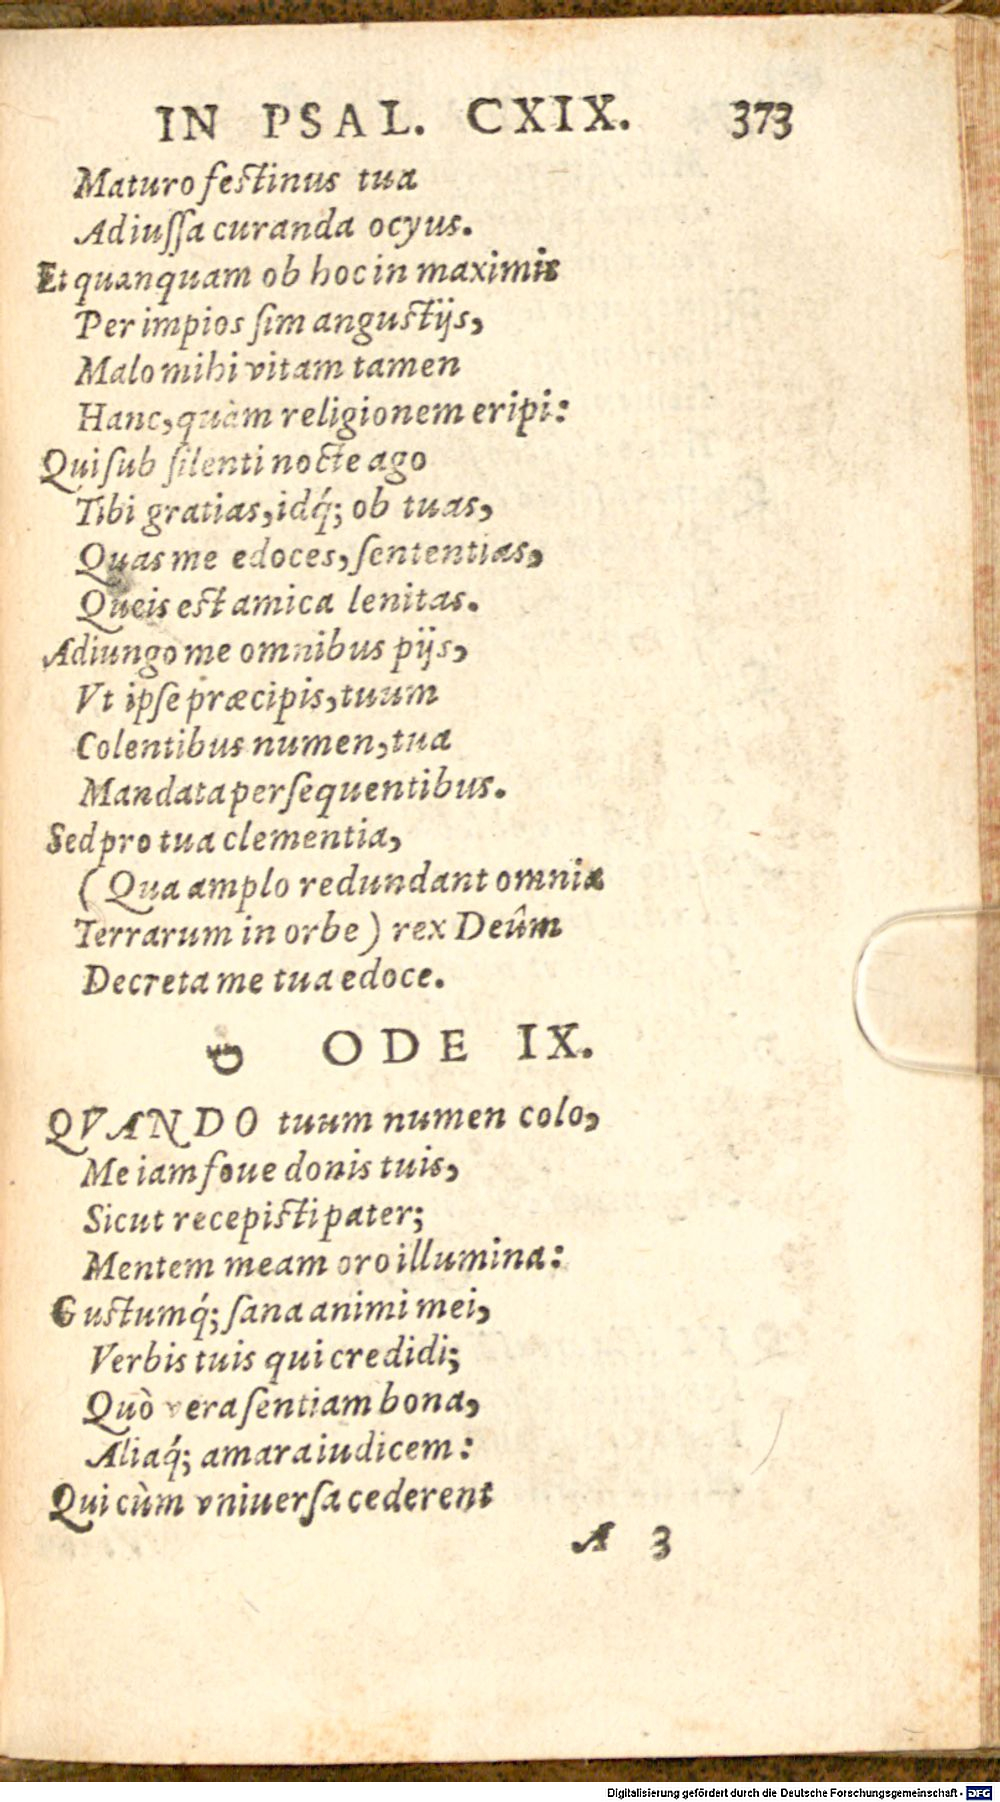 IN PSAL. CXIX. 373
Maturo festinus tua
Ad iussa curanda ocyus.
Et quanquam ob hoc in maximis
Per impios sim angustijs,
Malo mihi vitam tamen
Hanc, quàm religionem eripi:
Qui sub silenti nocte ago
Tibi gratias, idq́; ob tuas,
Quas me edoces, sententias,
Queis est amica lenitas.
Adiungo me omnibus pijs,
Vt ipse præcipis, tuum
Colentibus numen, tua
Mandata persequentibus.
Sed pro tua clementia,
( Qua amplo redundant omnia
Terrarum in orbe ) rex Deûm
Decreta me tua edoce.
ODE IX.
QVANDO tuum numen colo,
Me iam foue donis tuis,
Sicut recepisti pater;
Mentem meam oro illumina:
Gustumq́; sana animi mei,
Verbis tuis qui credidi;
Quò vera sentiam bona,
Aliaq́; amara iudicem:
Qui cùm vniuersa cederent
A 3
Digitalisierung gefördert durch die Deutsche Forschungsgemeinschaft - DFG